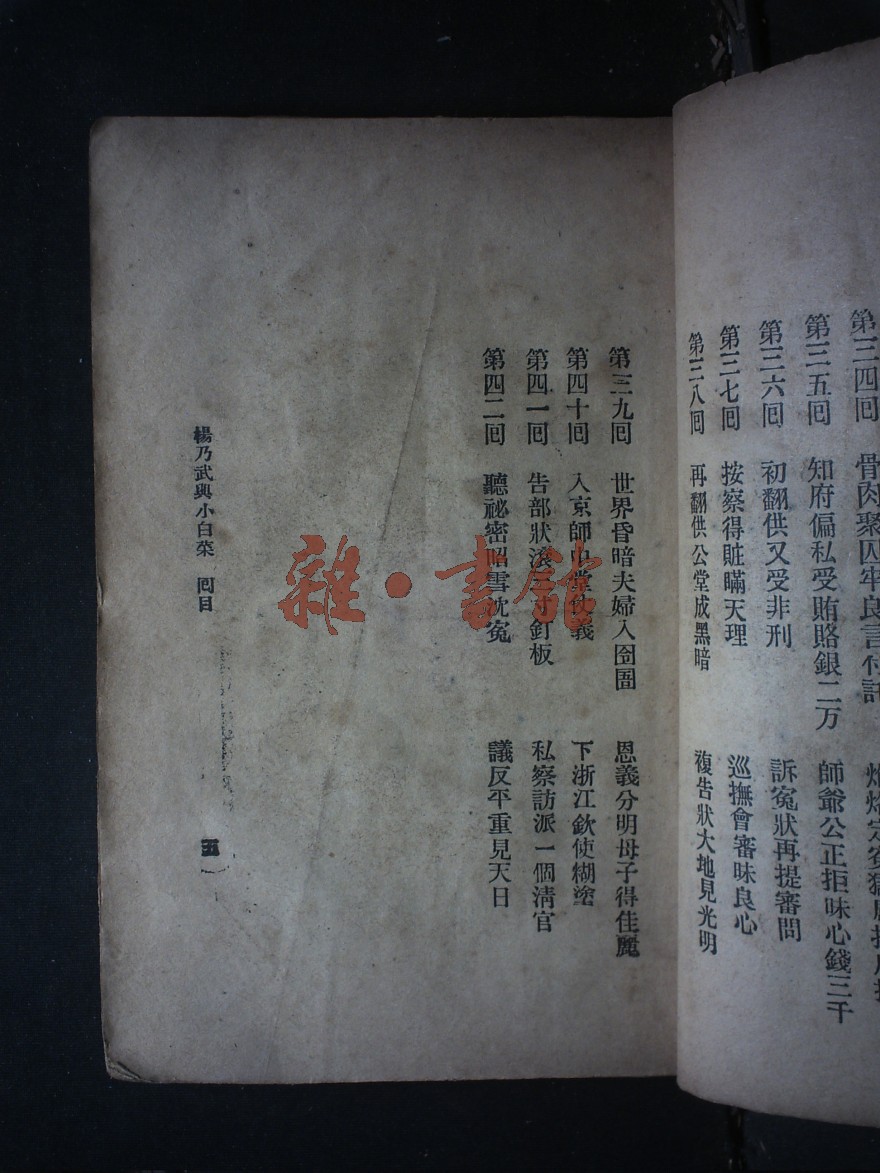 第三四回　骨肉聚囚牢良言付託
第三五回　知府偏私受賄賂銀二万　師爺公正拒昧心錢三千
第三六回　初翻供又受非刑　訴冤狀再提審問
第三七回　按察得賍瞞天理　巡撫會審昧良心
第三八回　再翻供公堂成黑暗　複告狀大地見光明
第三九回　世界昏暗夫婦入囹圄　恩義分明母子得佳麗
第四十回　入京師中堂仗義　下浙江欽使糊塗
第四一回　告部狀滾釘板　私察訪派一個清官
第四二回　聽祕密昭雪沈冤　議反平重見天日
楊乃武與小白菜　囘目
五
雜·書館